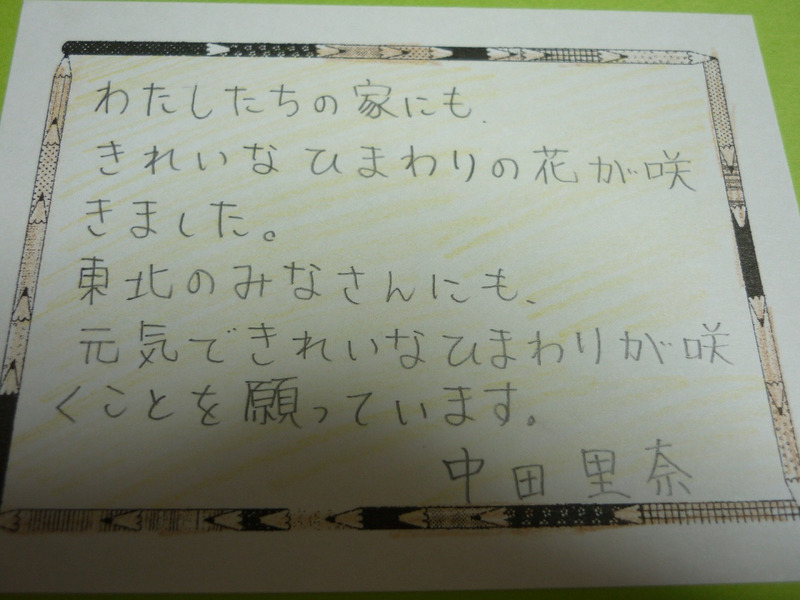 わたしたちの家にも、
きれいな ひまわりの花が咲
きました。
東北のみなさんにも、
元気できれいなひまわりが咲
くことを願っています。
中田里奈